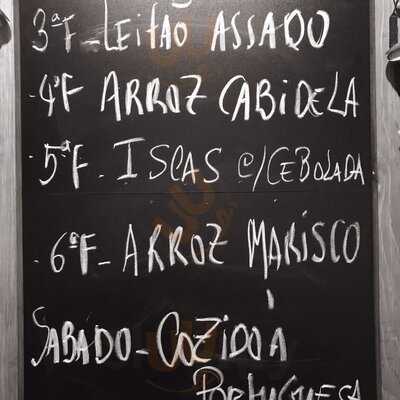 3ªF - LEITÃO ASSADO
- 4ªF ARROZ CABIDELA
- 5ªF - ISCAS C/CEBOLADA
- 6ªF - ARROZ MARISCO
SÁBADO - COZIDO À
PORTUGUESA